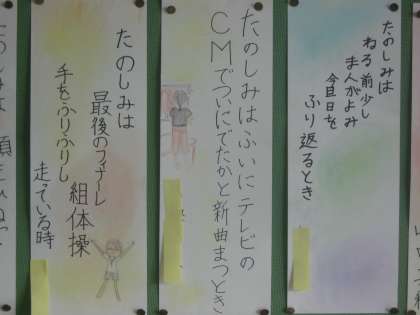 たのしみは
ねる前少し
まんがよみ
今日一日を
ふり返るとき
たのしみはふいにテレビの
CMでついにでたかと新曲まつとき
たのしみは
最後のフィナーレ
組体操
手をふりふりし
走っている時